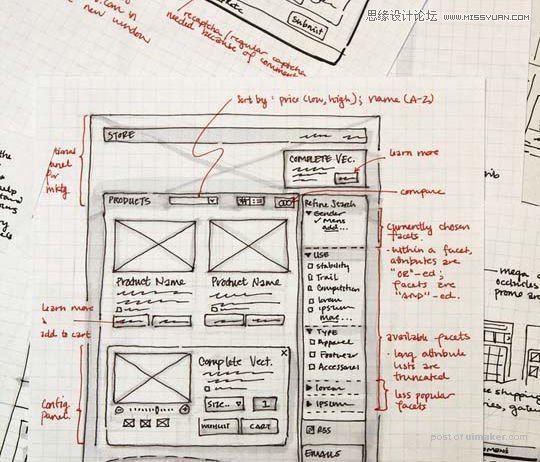 思缘设计论坛 WWW.MISSYUAN.COM
can in
new window
recaptcha/regular captcha
needed because of comment
Submit
Sort by: price (low, high); name (A-Z)
STORE
COMPLETE VEC.
learn more
for
mktg.
PRODUCTS
compare
Refine Search
Gender
Mens
add...
currently chosen
facets.
USE
Stability
Trail
Competition
lorem
ipsum
more...
within a facet,
attributes are
"OR"-ed;
facets are
"AND"-ed.
Product Name
Product Name
learn more
&
add to cart
TYPE
Apparel
Footwear
Accessories
available facets
long attribute
lists are
truncated
Complete Vect.
X
Size..
1
WISHLIST
CART
Config.
panel.
lorem
ipsum
less popular
facets
RSS
EMAILS
mega
shipping
post of uimaker.com